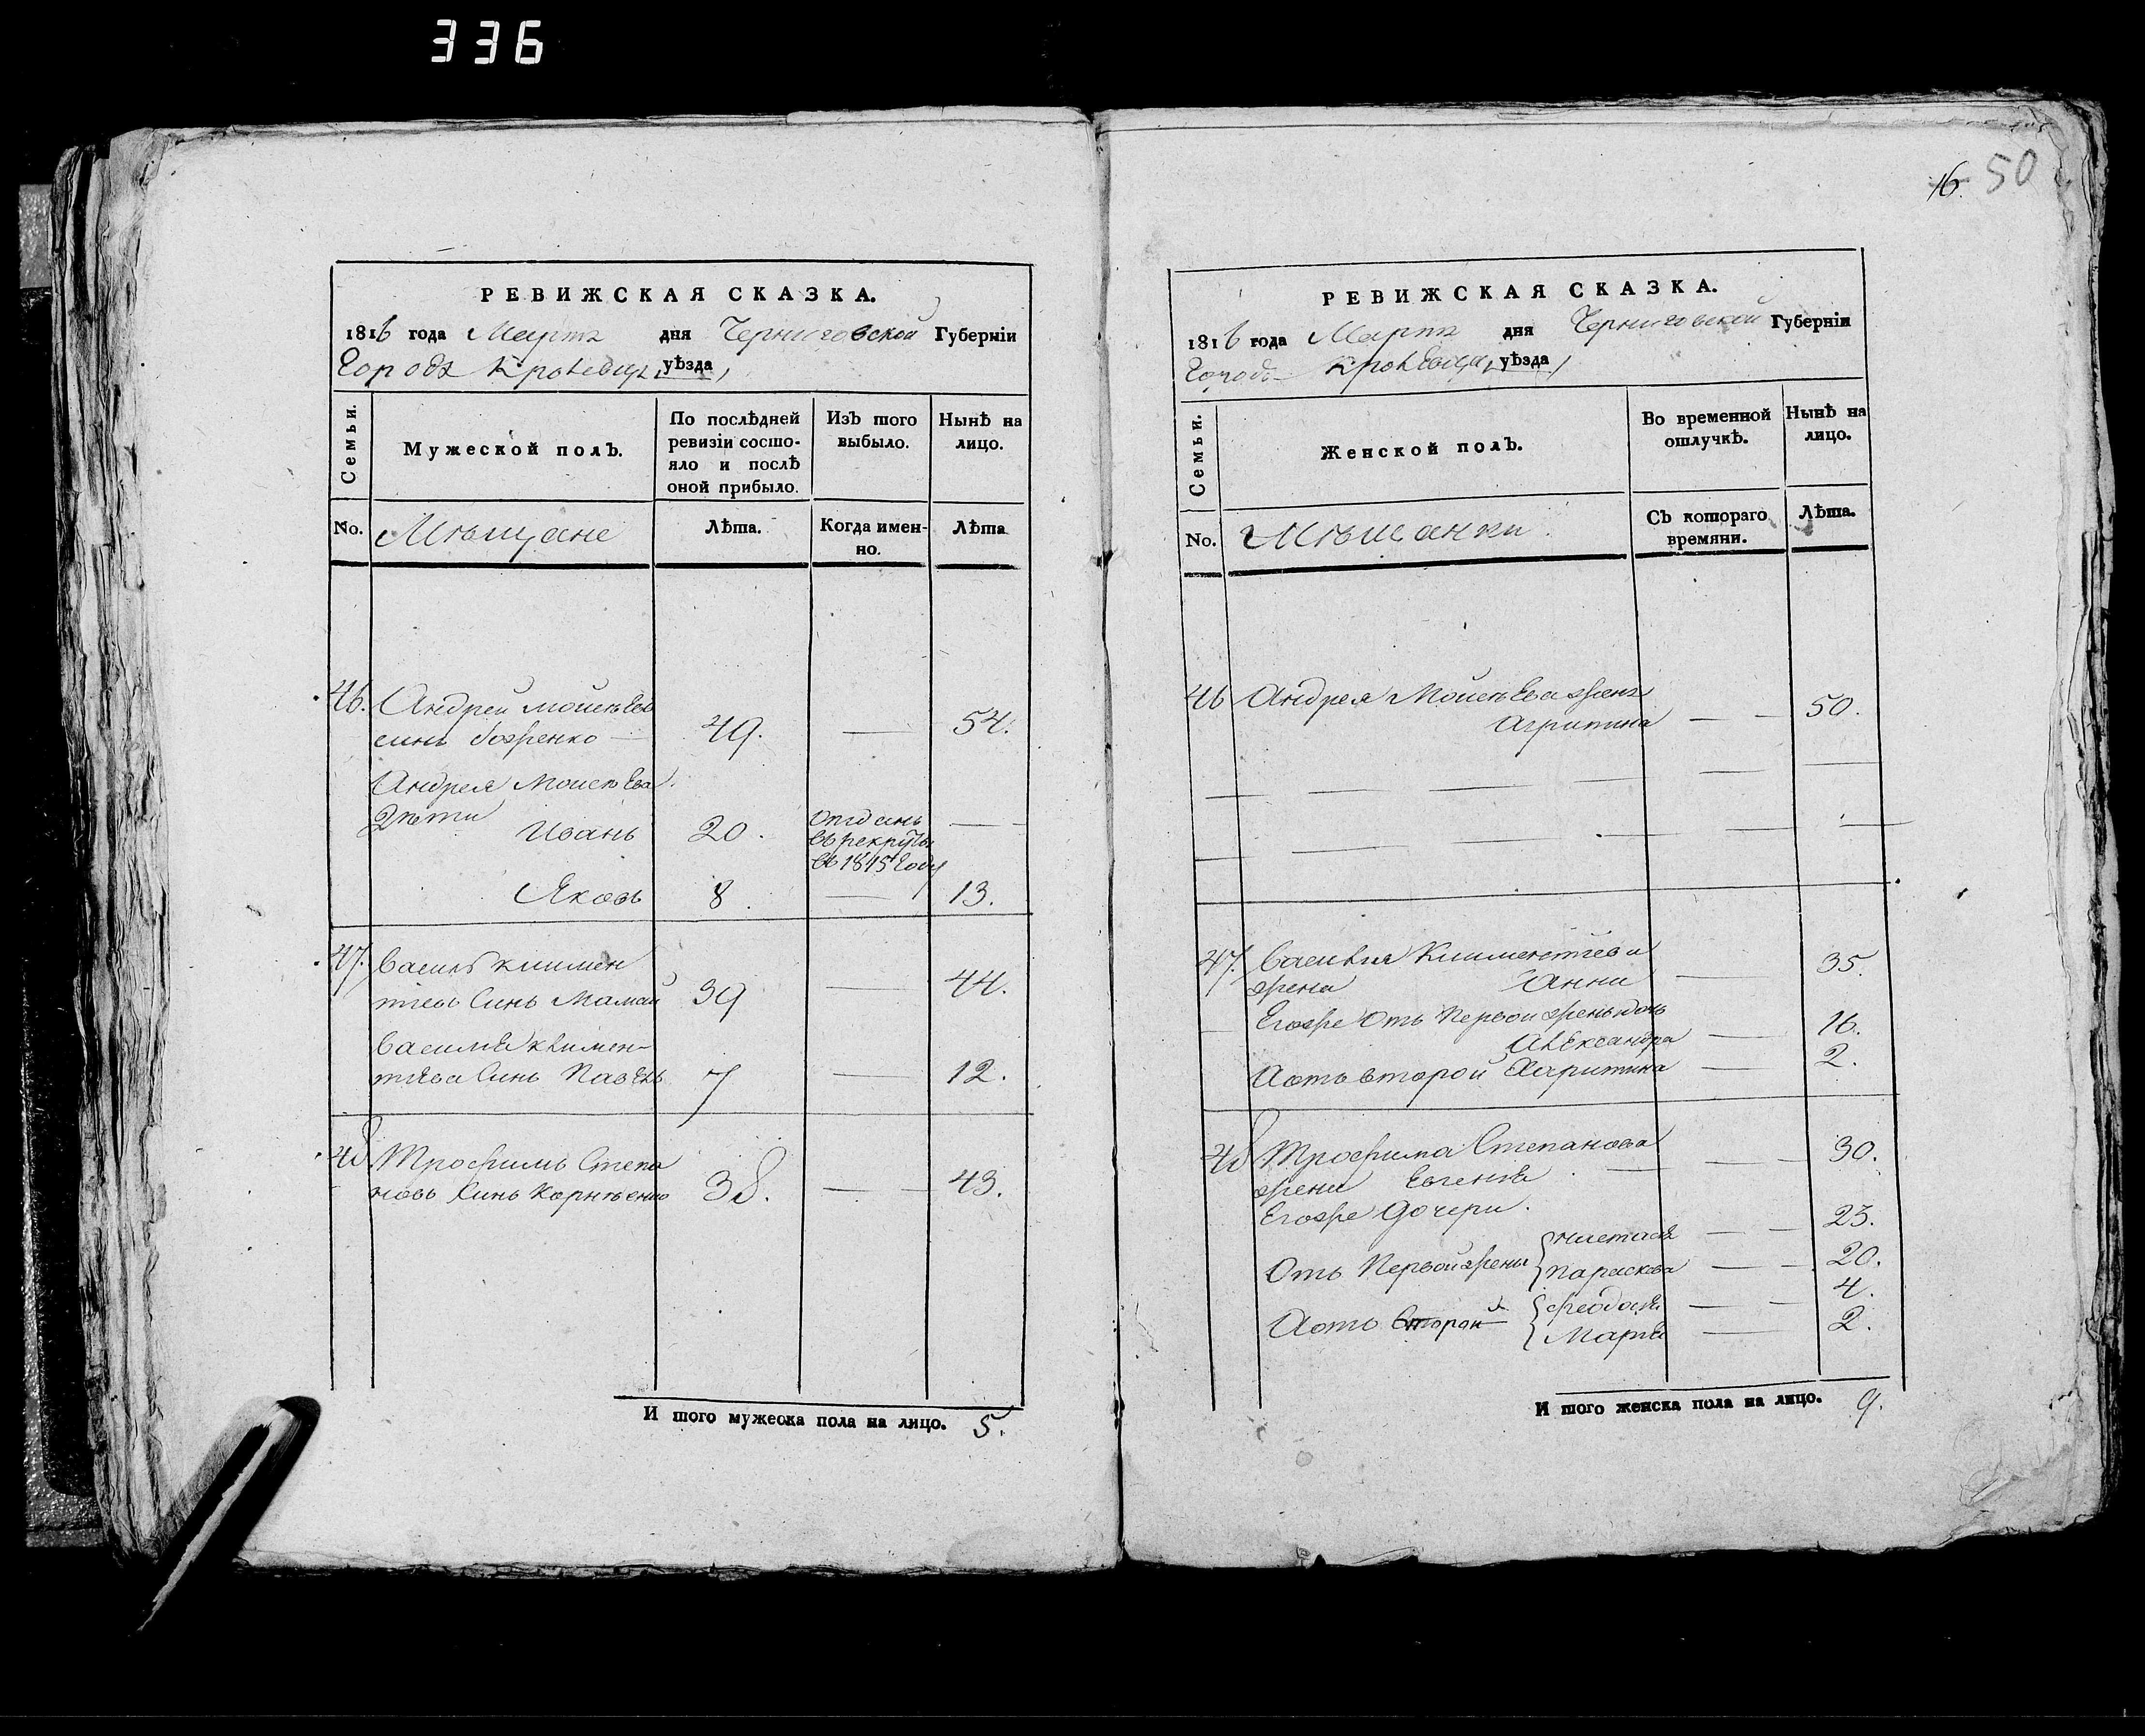 336
РЕВИЖСКАЯ СКАЗКА.
1816 года Марта дня Черниговской Губерніи
Города Кролевца, уѣзда,
Семьи.
Мужеской полъ.
По послѣдней ревизіи состояло и послѣ оной прибыло.
Изъ того выбыло.
Нынѣ на лицо.
No.
Мѣщане
Лѣта.
Когда именно.
Лѣта
46. Андрей Мойсѣевъ
синъ 49. — 54.
Андрея Мойсѣева
дѣти
Иванъ 20. Отданъ
въ рекруты
въ 1815 Году —
Яковъ 8. — 13.
47. Василь Климен
тіевъ Синъ Мамай 39 — 44.
Василія Климен-
тіева Синъ Павелъ 7 — 12.
48 Трофимъ Степа
новъ Синъ Корнѣенко 38. — 43.
И того мужеска пола на лицо. 5.
16. 50
РЕВИЖСКАЯ СКАЗКА.
1816 года Марта дня Черниговской Губерніи
Города Кролевца, уѣзда,
Семьи.
Женской полъ.
Во временной отлучкѣ.
Нынѣ на лицо.
No.
Мѣщанки.
Съ котораго времяни.
Лѣта.
46 Андрея Мойсѣева жена
Агрипина — — 50.
47. Василія Климентіева
жена Анна — 35.
Егоже отъ Первой жены дочь
Александра — 16.
А отъ второй Агрипина — 2.
48. Трофима Степанова
жена Евгенія — — 30.
Егоже Дочери.
Отъ Первой жены { Настася — — 23.
Параскева — — 20.
А отъ Второй { Феодося — — 4.
Марія — 2.
И того женска пола на лицо. 9.